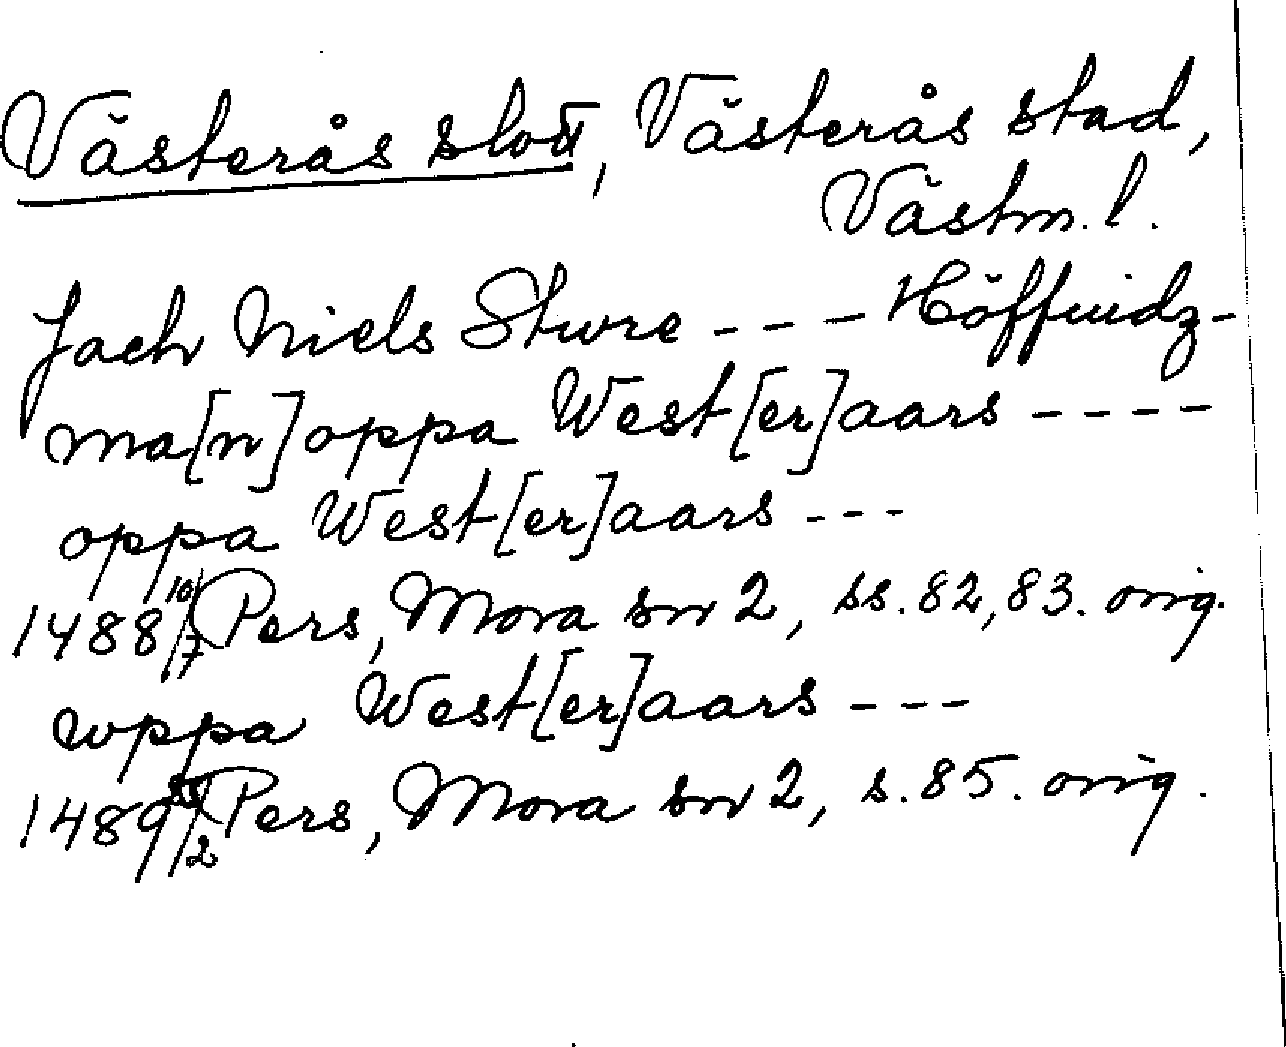 Västerås slott, Västerås stad,
Västm. l.
Jach Niels Sture --- Höffuidz-
ma[n] oppa West[er]aars ----
oppa West[er]aars ---
1488 10/7 Pers, Mora sn 2, ss. 82, 83. orig.
uppa West[er]aars ---
1489 /2 Pers, Mora sn 2, s. 85. orig.